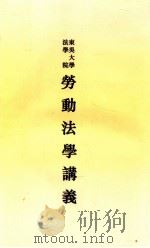 東吳大學
法學院
勞動法學講義